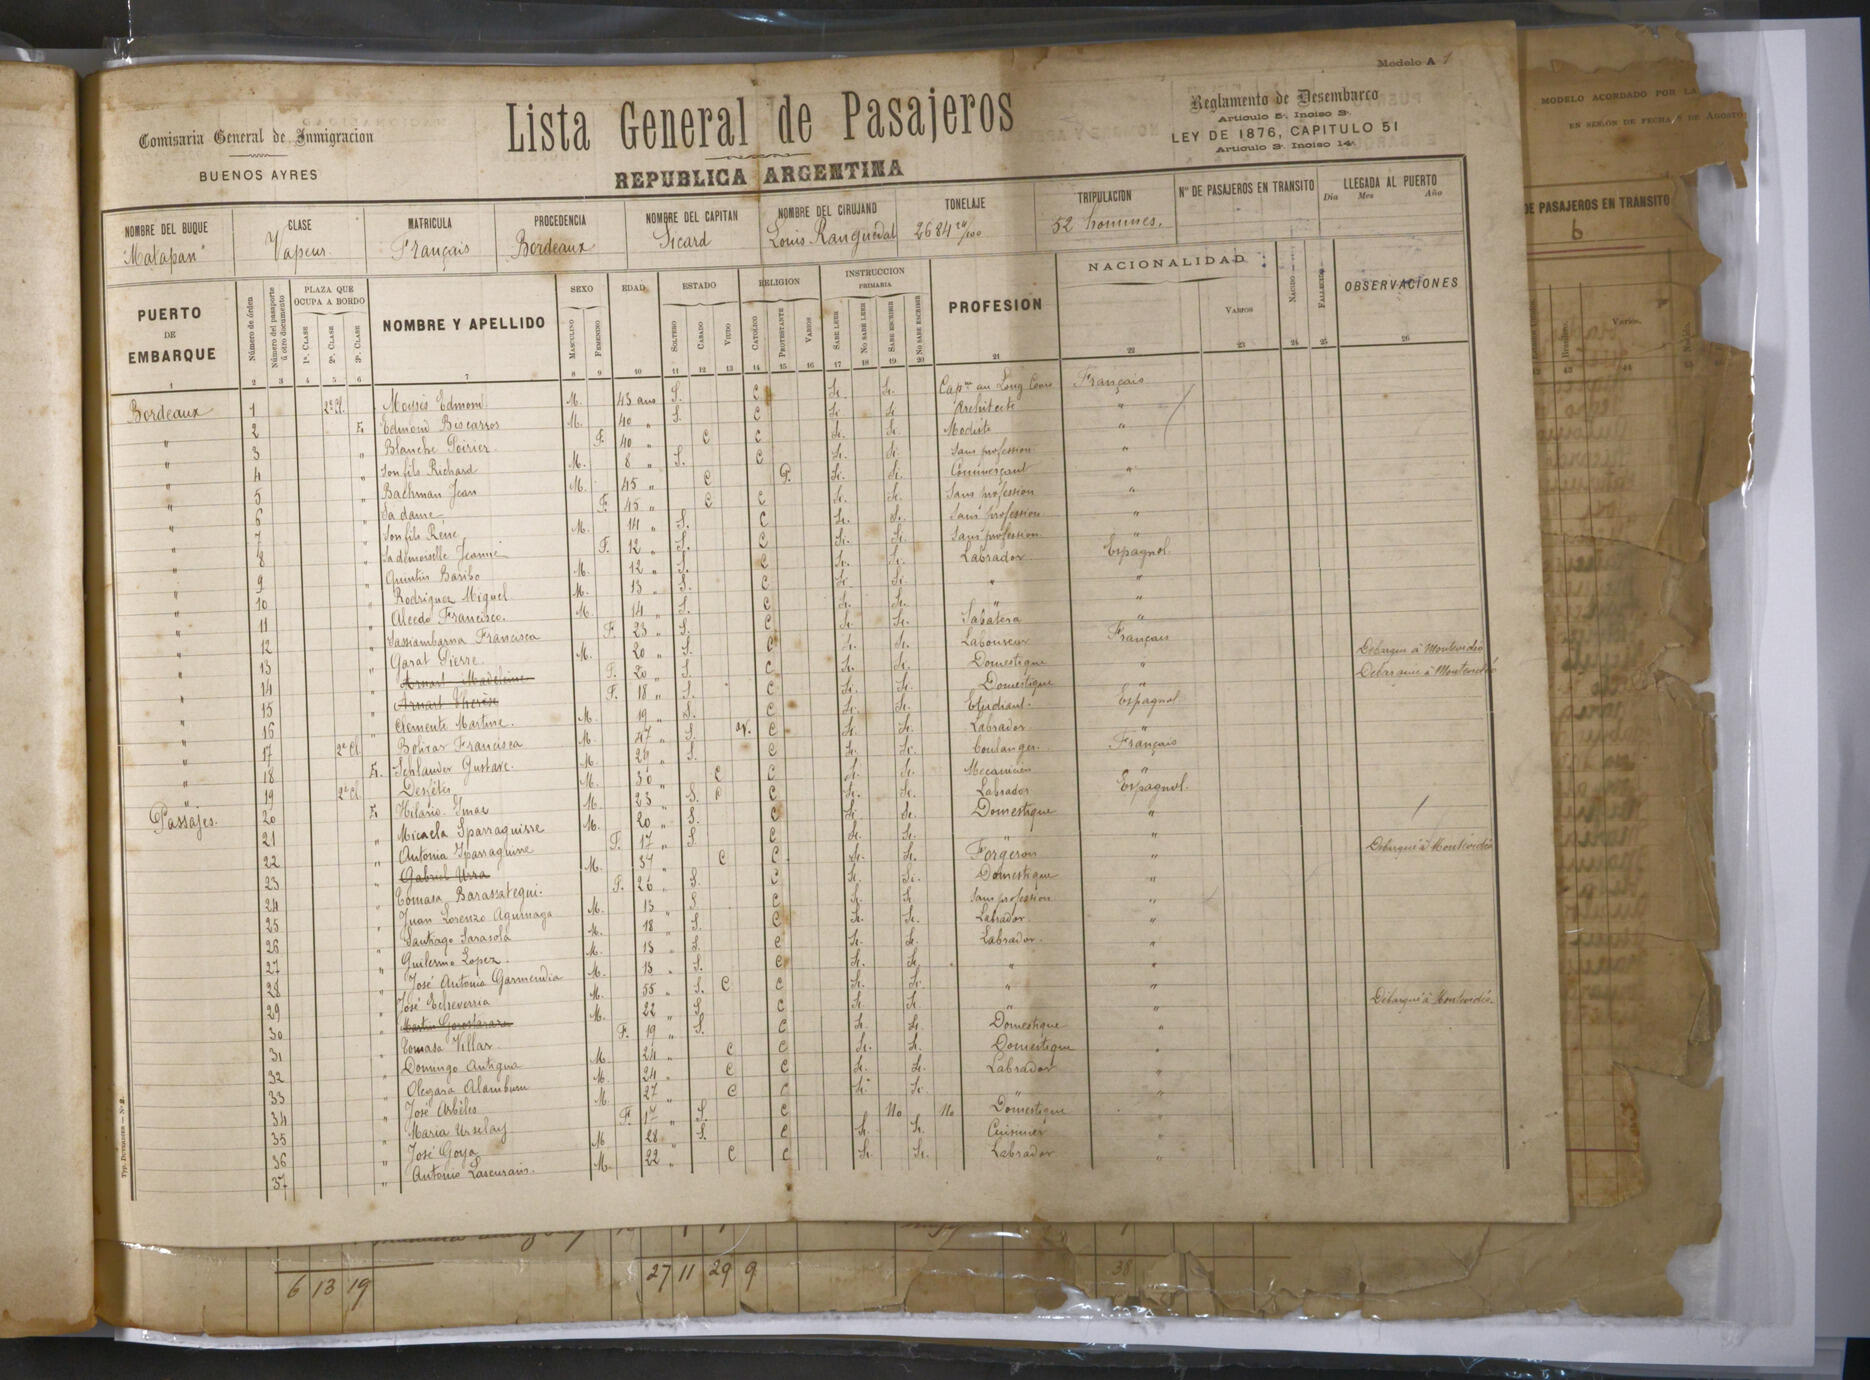 Modelo A 1
Comisaria General de Inmigracion
BUENOS AYRES
Lista General de Pasajeros
REPUBLICA ARGENTINA
Reglamento de Desembarco
Articulo 5º. Inciso 3º.
LEY DE 1876, CAPITULO 51
Articulo 3º. Inciso 14º.
MODELO ACORDADO POR LA
EN SESIÓN DE FECHA 8 DE AGOSTO
NOMBRE DEL BUQUE CLASE MATRICULA PROCEDENCIA NOMBRE DEL CAPITAN NOMBRE DEL CIRUJANO TONELAJE TRIPULACION Nº DE PASAJEROS EN TRANSITO LLEGADA AL PUERTO
Dia Mes Año
"Matapan" Vapeur Français Bordeaux Sicard Louis Ranguedal 2684 52 hommes.
DE PASAJEROS EN TRANSITO
6
PUERTO DE EMBARQUE Número de órden Número del pasaporte ú otro documento PLAZA QUE OCUPA A BORDO 1ª. CLASE 2ª. CLASE 3ª. CLASE NOMBRE Y APELLIDO SEXO MASCULINO FEMENINO EDAD ESTADO SOLTERO CASADO VIUDO RELIGION CATÓLICO PROTESTANTE VARIOS INSTRUCCION PRIMARIA SABE LEER NO SABE LEER SABE ESCRIBIR NO SABE ESCRIBIR PROFESION NACIONALIDAD VARIOS NACIDO FALLECIDO OBSERVACIONES
1 2 3 4 5 6 7 8 9 10 11 12 13 14 15 16 17 18 19 20 21 22 23 24 25 26
Bordeaux 1 2e Cl. Edmond M. 43 ans S. C Si. Si. Cap.ne au Long Cours Français
" 2 Edmond Biscarros M. 40 " S. C Si. Si Architecte "
" 3 " Blanche Poirier F. 40 " C C Si. Si. Modiste "
" 4 " Son fils Richard M. 8 " S. C Si. Si Sans profession "
" 5 " Bachman Jean M. 45 " C P. Si. Si. Commerçant "
" 6 " Sa dame F. 45 " C C Si. Si. Sans profession "
" 7 " Son fils René M. 14 " S. C Si. Si. Sans profession "
" 8 " Sa demoiselle Jeanne F. 12 " S. C Si. Si. Sans profession "
" 9 " Quintin Baribo M. 12 " S. C Si. Si. Labrador Espagnol
" 10 " Rodriguez Miguel M. 13 " S. C Si. Si. " "
" 11 " Alcedo Francisco. M. 14 " S. C Si. Si. " "
" 12 " Sassiambarna Francisca F. 23 " S. C Si. Si. Sabatera "
" 13 " Garat Pierre M. 20 " S. C Si. Si. Laboureur Français
" 14 Arnart Madeleine F. 20 " S. C Si. Si. Domestique " Debarque à Montevideo
" 15 " Arnart Therèse F. 18 " S. C Si. Si. Domestique " Debarquée à Montevideo
" 16 " Clemente Martine. M. 19 " S. C Si. Si. Etudiant. Espagnol
" 17 2e Cl Bolivar Francisca M. 47 " S. C Si. Si. Labrador "
" 18 Schlander Gustave. M. 24 " S. C Si. Si. Boulanger. Français
" 19 2e Cl. M. 30 " C C Si. Si. Mecanicien "
Passajes. 20 Hilario M. 23 " S. C Si. Si. Labrador Espagnol.
21 Micaela Yparraguirre M. 20 " S. C Si. Si. Domestique "
22 " Antonia Yparraguirre F. 17 " S C Si. Si. " "
23 " Gabriel Urra M. 37 " C C Si. Si. Forgeron " Debarqué à Montévidéo
24 " Tomasa Barassategui. F. 26 " S. C Si. Si. Domestique "
25 " Juan Lorenzo Aguinaga M. 13 " S. C Si. Si Sans profession "
26 " Santiago Sarasola M. 18 " S. C Si. Si. Labrador "
27 " Guilermo Lopez. M. 13 " S. C Si. Si. Labrador. "
28 " José Antonio Garmendia M. 13 " S. C Si. Si. " "
29 " José Echeverria M. 55 " S. C C Si. Si. " "
30 " Martin Gorostarazu M. 22 " S. C Si. Si " " Débarqué à Montévidéo.
31 " Tomasa Villar F. 19 " S. C Si. Si. Domestique "
32 " Domingo Antigua M. 24 " C C Si. Si. Domestique "
33 " Olegara Alamburu M. 24 " C C Si. Si. Labrador "
34 " José Arbéles M. 27 " C C Si. Si. " "
35 " Maria Urselay F. 17 " S. C No No Domestique "
36 " José Goya M 28 " S. C Si. Si. Cuisinier "
37 " Antonio Lascurain. M. 22 " C C Si. Si. Labrador "
6 13 19 27 11 29 9 38